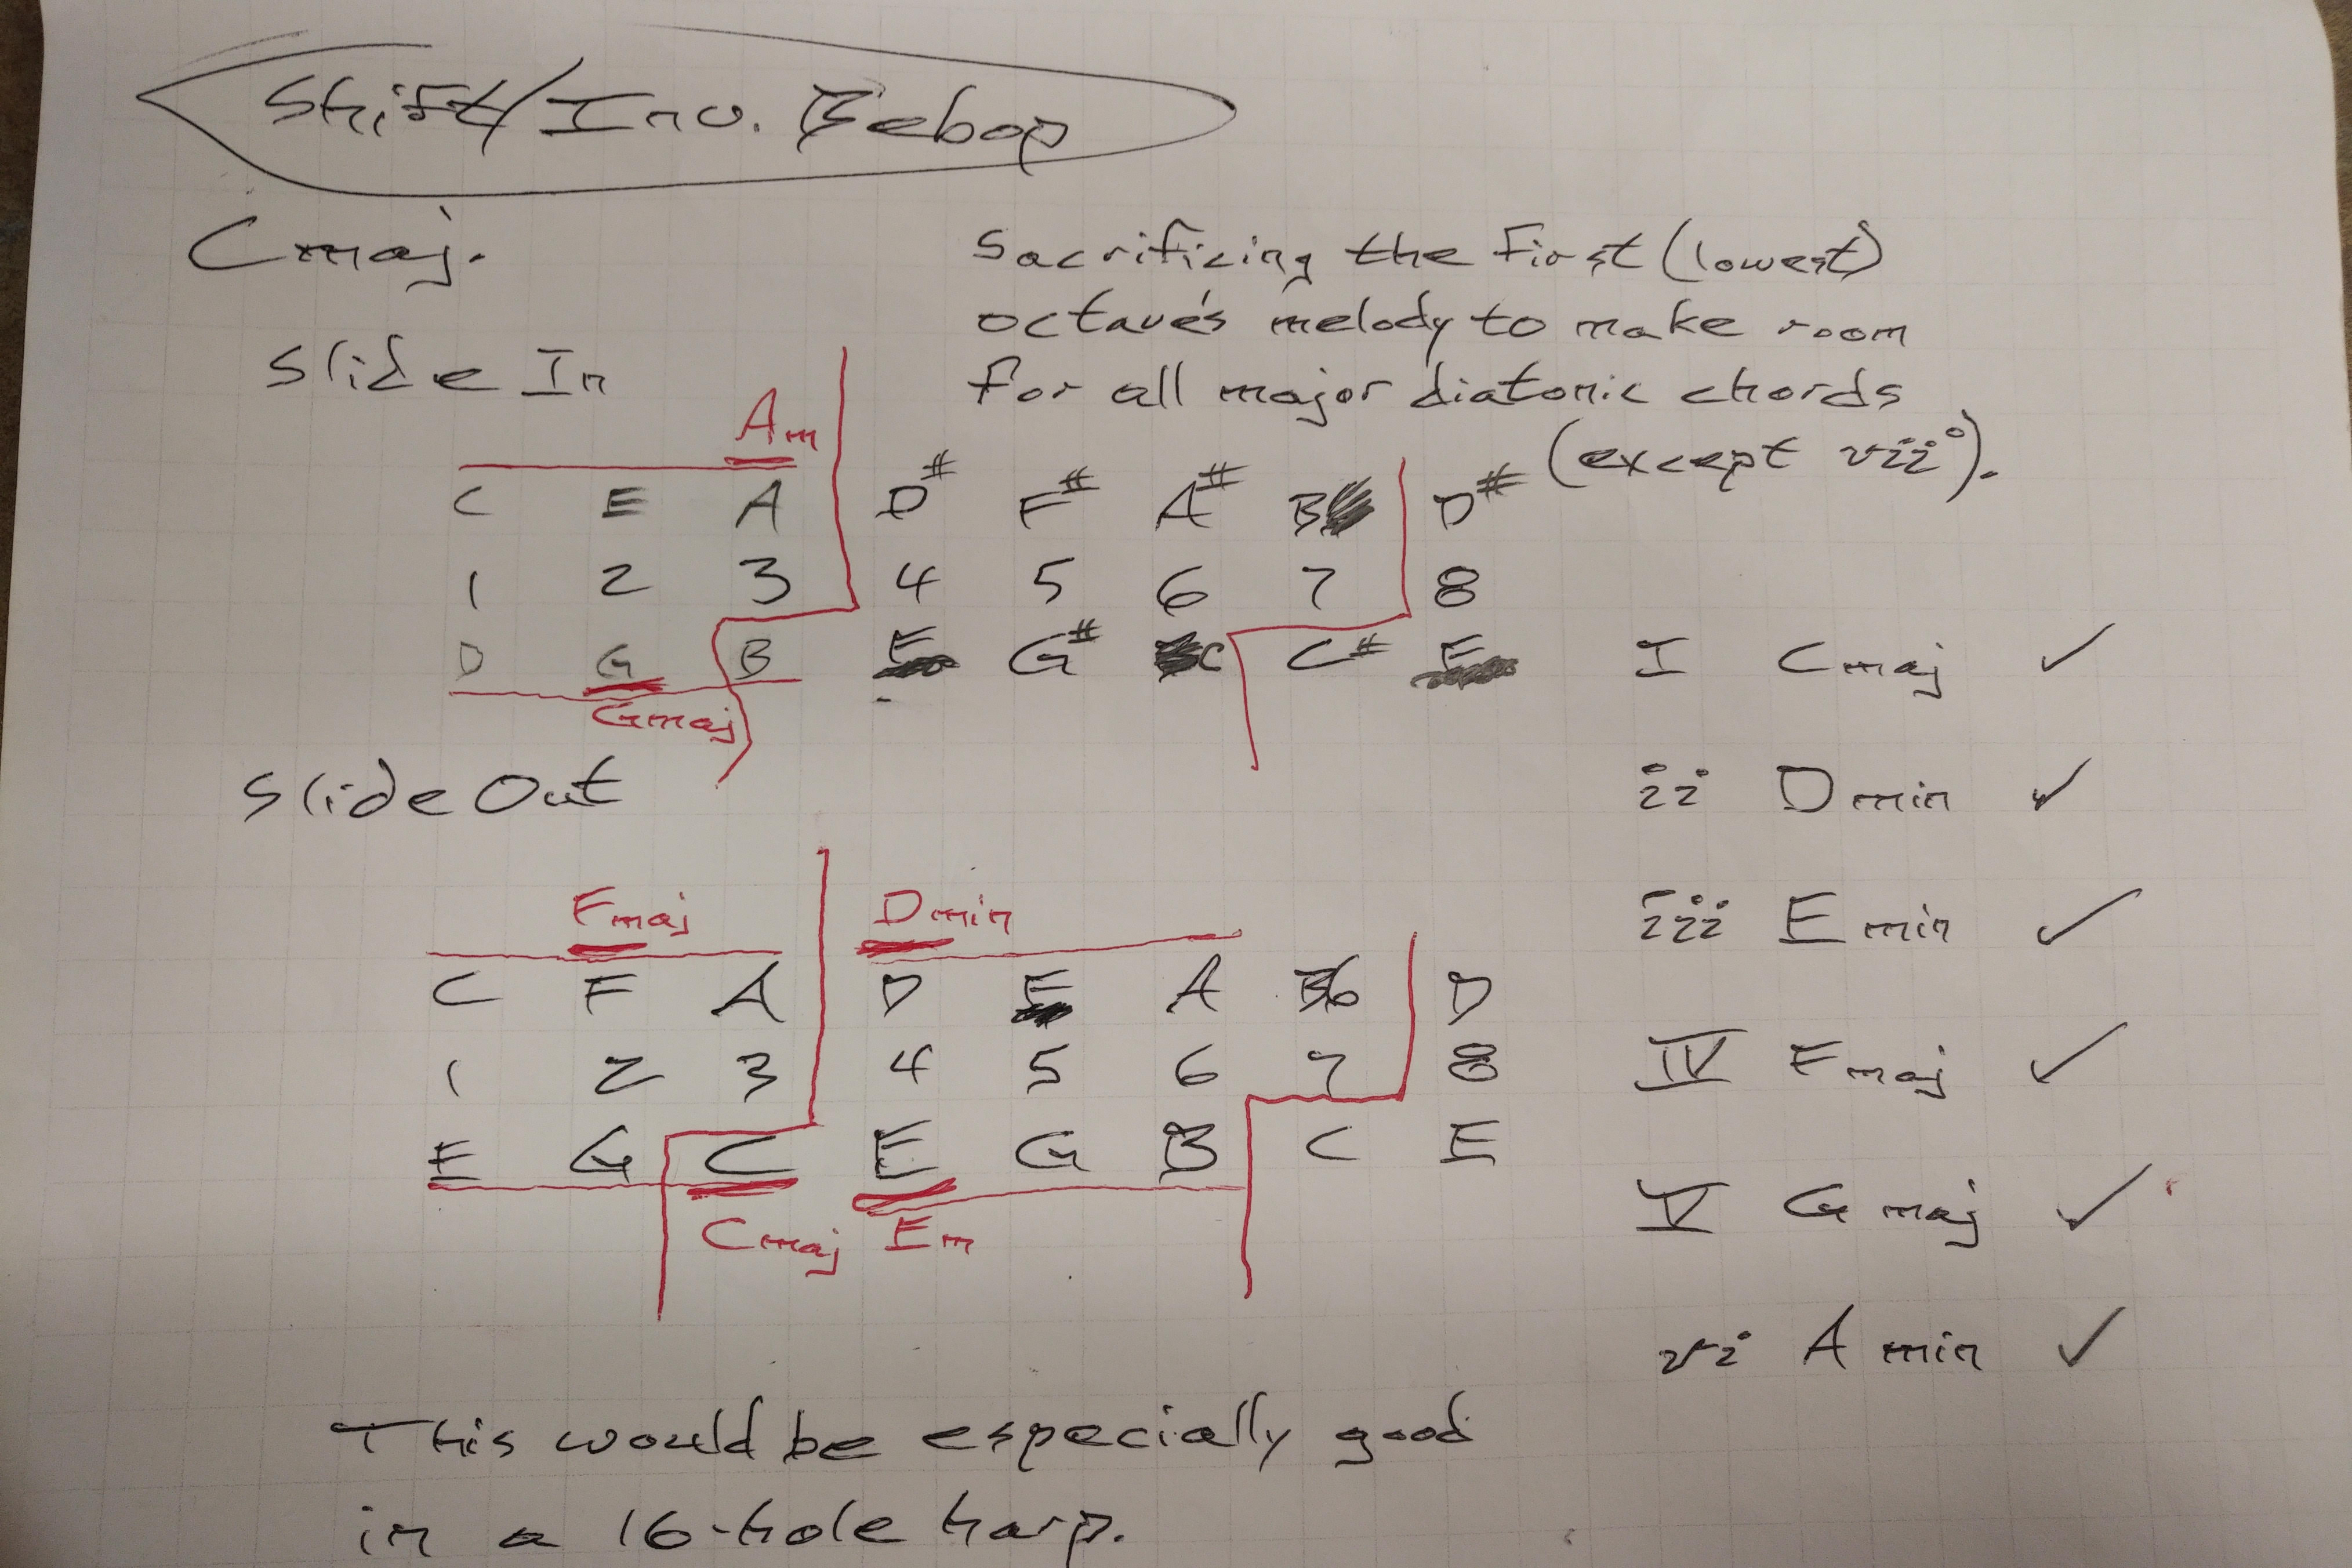 Shift/Inv. Bebop
Cmaj.
Sacrificing the first (lowest)
octave's melody to make room
for all major diatonic chords
(except vii°).
Slide In
Am
C E A D# F# A# B D#
1 2 3 4 5 6 7 8
D G B F G# C C# F
Gmaj
Slide Out
Fmaj Dmin
C F A D F A Bb D
1 2 3 4 5 6 7 8
E G C E G B C E
Cmaj Em
I Cmaj ✓
ii Dmin ✓
iii Emin ✓
IV Fmaj ✓
V Gmaj ✓
vi Amin ✓
This would be especially good
in a 16-hole harp.